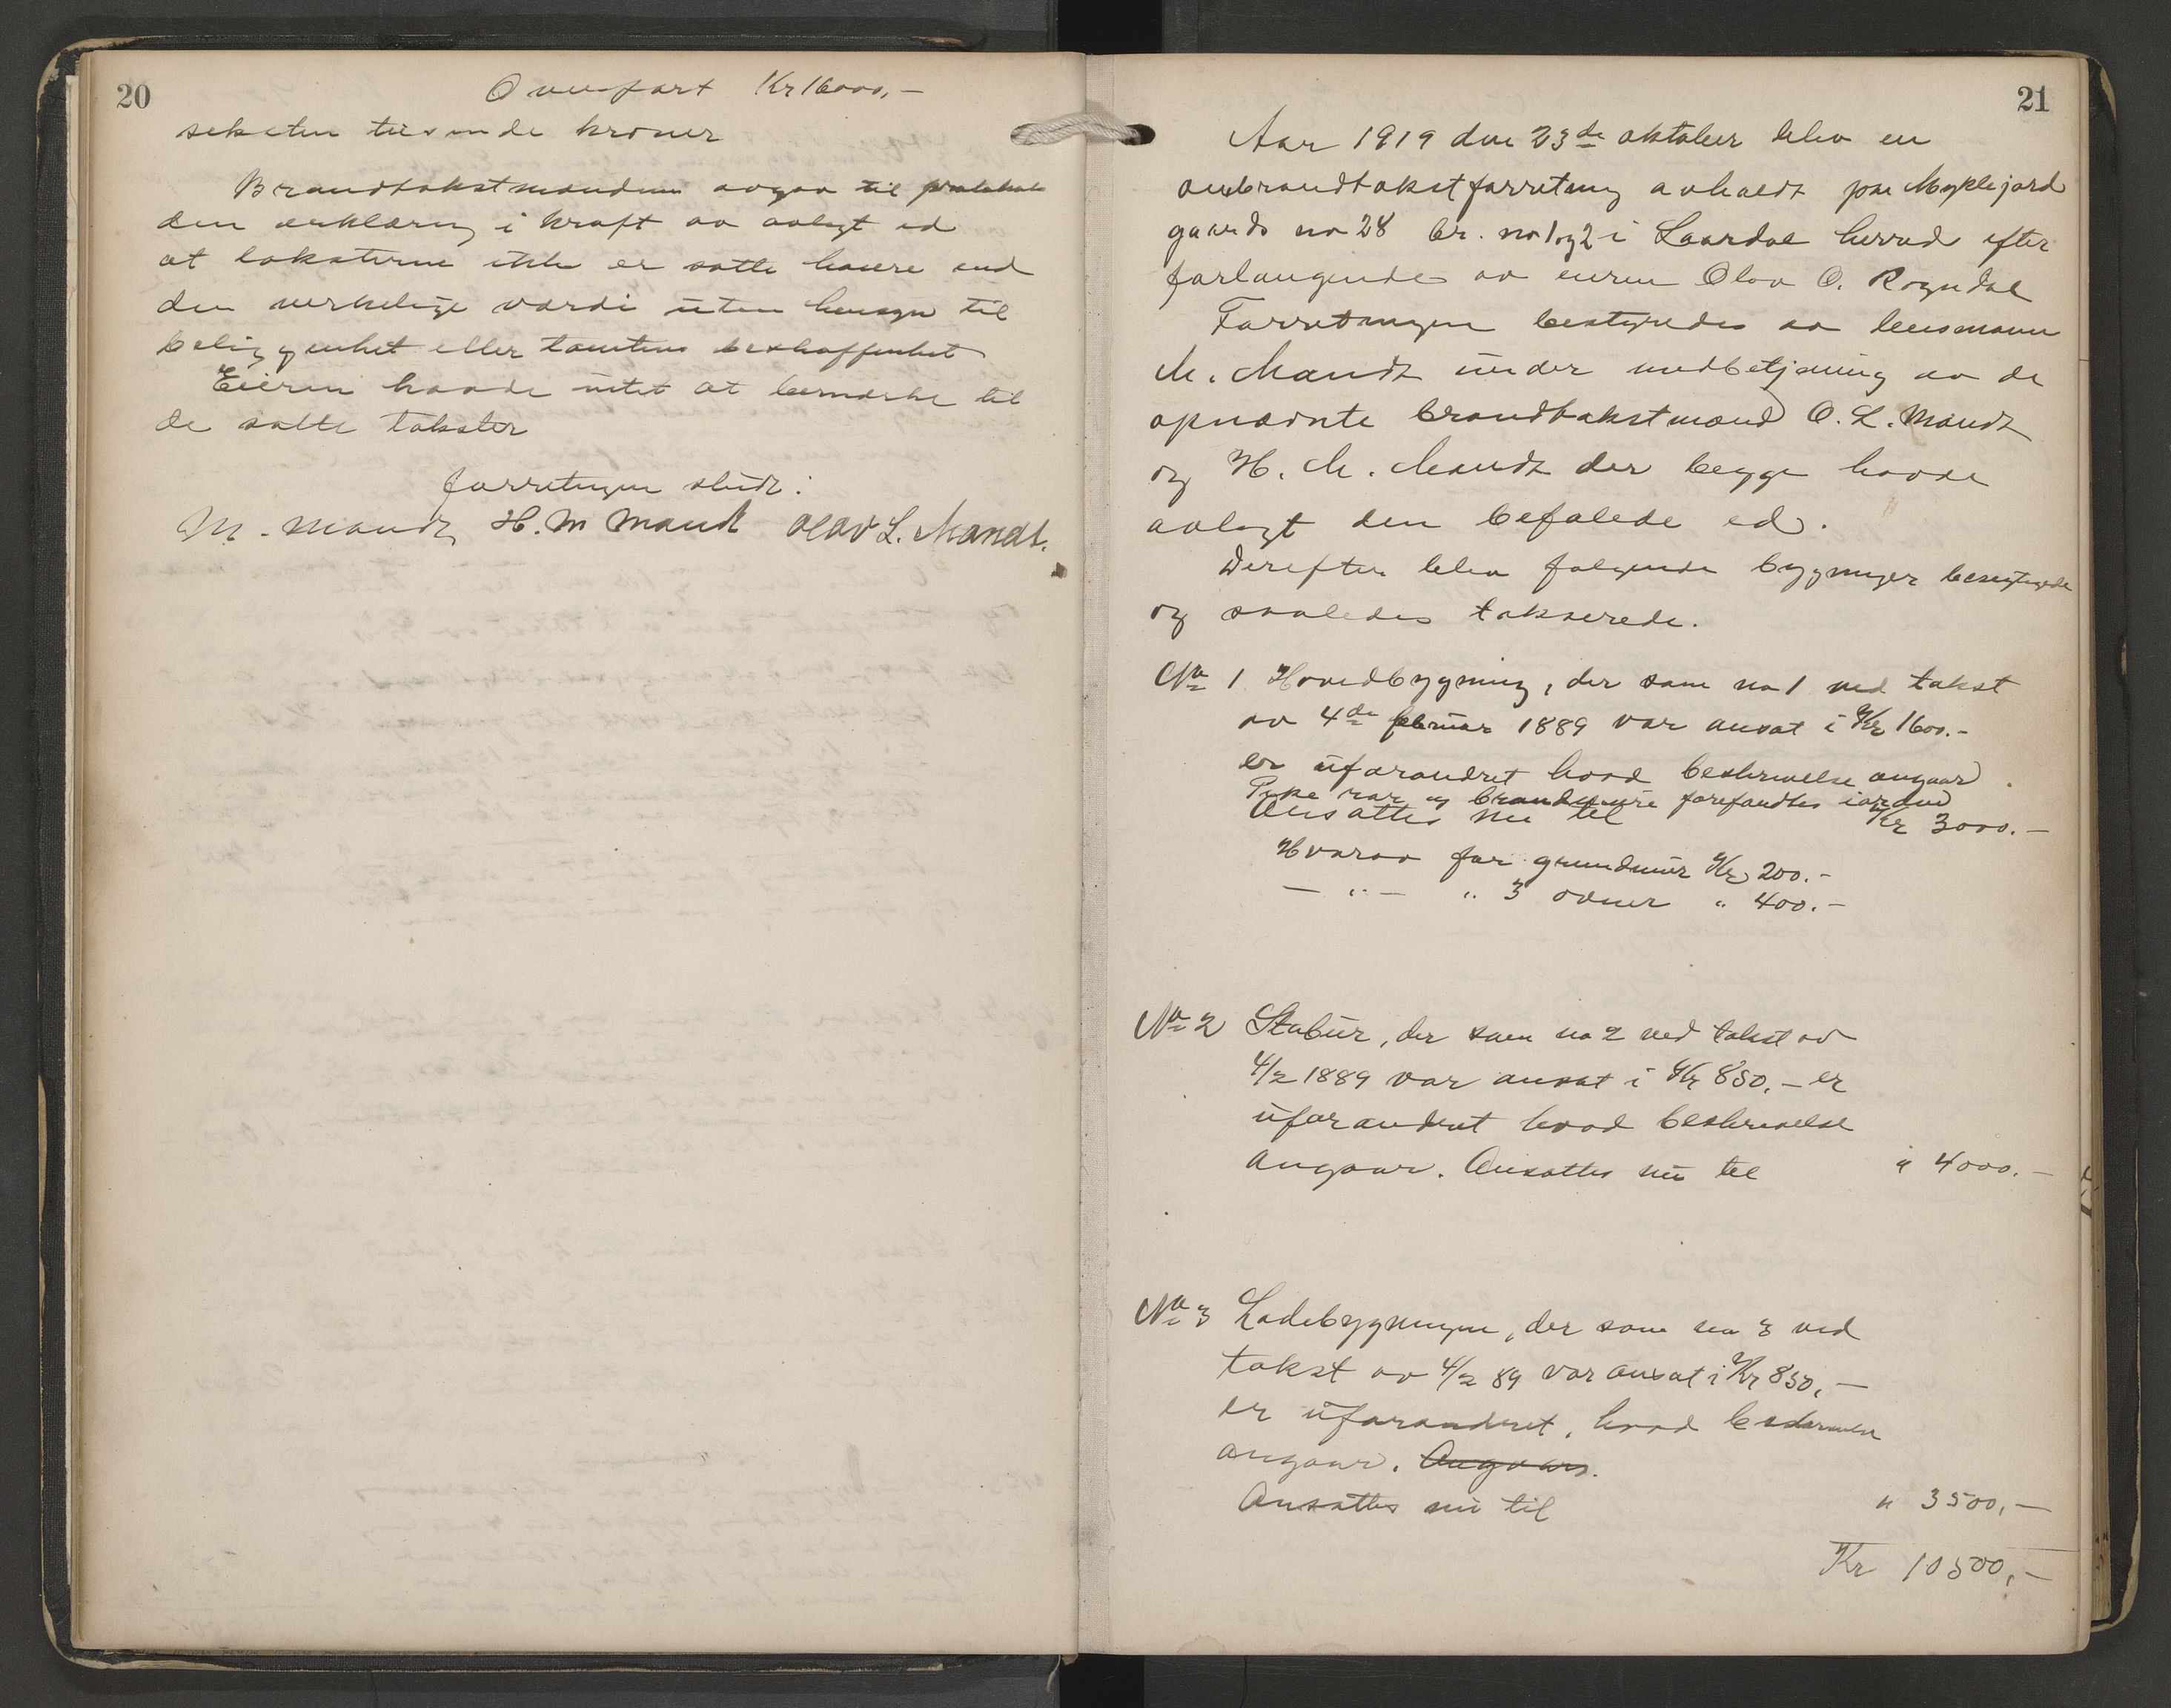 20
Overført Kr 16000,-
seksten tusende kroner
Brandtakstmændene avgav til protokol
den erklæring i kraft av avlagt ed
at taksterne ikke er satte høiere end
den verkelige værdi uten hensyn til
beliggenhet eller tomtens beskaffenhet
Eieren havde intet at bemærke til
de satte takster
forretningen slut:
M. Mandt H. M Mandt Olav L. Mandt.
21
Aar 1919 den 23de oktober blev en
ombrandtakstforretning avholdt paa Myklejord
gaards no 28 br. no 1 og 2 i Laardal herred efter
forlangende av eieren Olav O. Rogndal
Forretningen bestyredes av lensmann
M. Mandt under medbetjening av de
opnævnte brandtakstmænd O. L. Mandt
og H. M. Mandt der begge havde
avlagt den befalede ed.
Derefter blev følgende bygninger besigtigede
og saaledes takserede.
No 1 Hovedbygning, der som no 1 ved takst
av 4de februar 1889 var ansat i Kr 1600.-
er uforandret hvad beskrivelse angaar
Pipe rør og brandmure forefandtes i orden
Ansattes nu til Kr 3000.-
Hvorav for grundmur Kr 200.-
— " — " 3 ovner " 400.-
No 2 Stabur, der som no 2 ved takst av
4/2 1889 var ansat i Kr 850.- er
uforandret hvad beskrivelse
angaar. Ansattes nu til " 4000.-
No 3 Ladebygningen, der som no 3 ved
takst av 4/2 89 var ansat i Kr 850,-
er uforandret, hvad beskrivelse
angaar. Angaar.
Ansattes nu til " 3500,-
Kr 10500,-